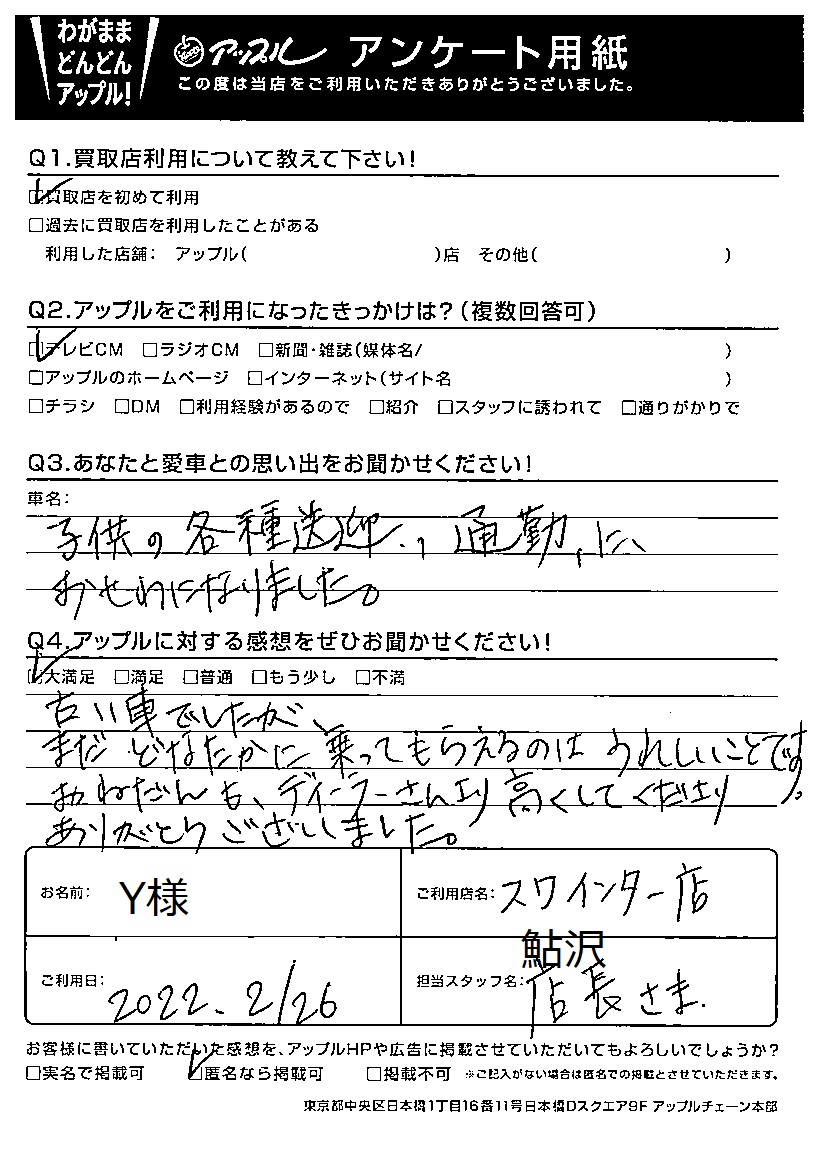 わがまま
どんどん
アップル!
アップル アンケート用紙
この度は当店をご利用いただきありがとうございました。
Q1.買取店利用について教えて下さい!
☑買取店を初めて利用
□過去に買取店を利用したことがある
利用した店舗: アップル( )店 その他( )
Q2.アップルをご利用になったきっかけは?(複数回答可)
☑テレビCM □ラジオCM □新聞・雑誌(媒体名/ )
□アップルのホームページ □インターネット(サイト名 )
□チラシ □DM □利用経験があるので □紹介 □スタッフに誘われて □通りがかりで
Q3.あなたと愛車との思い出をお聞かせください!
車名:
子供の各種送迎、通勤、に、
おせわになりました。
Q4.アップルに対する感想をぜひお聞かせください!
☑大満足 □満足 □普通 □もう少し □不満
古い車でしたが、
まだ どなたかに 乗ってもらえるのは うれしいことです。
おねだんも、ディーラーさんより 高くしてくださり
ありがとうございました。
お名前: Y様
ご利用店名: スワインター店
ご利用日: 2022. 2/26
担当スタッフ名: 鮎沢
店長さま.
お客様に書いていただいた感想を、アップルHPや広告に掲載させていただいてもよろしいでしょうか?
□実名で掲載可 ☑匿名なら掲載可 □掲載不可 ※ご記入がない場合は匿名での掲載とさせていただきます。
東京都中央区日本橋1丁目16番11号日本橋Dスクエア9F アップルチェーン本部